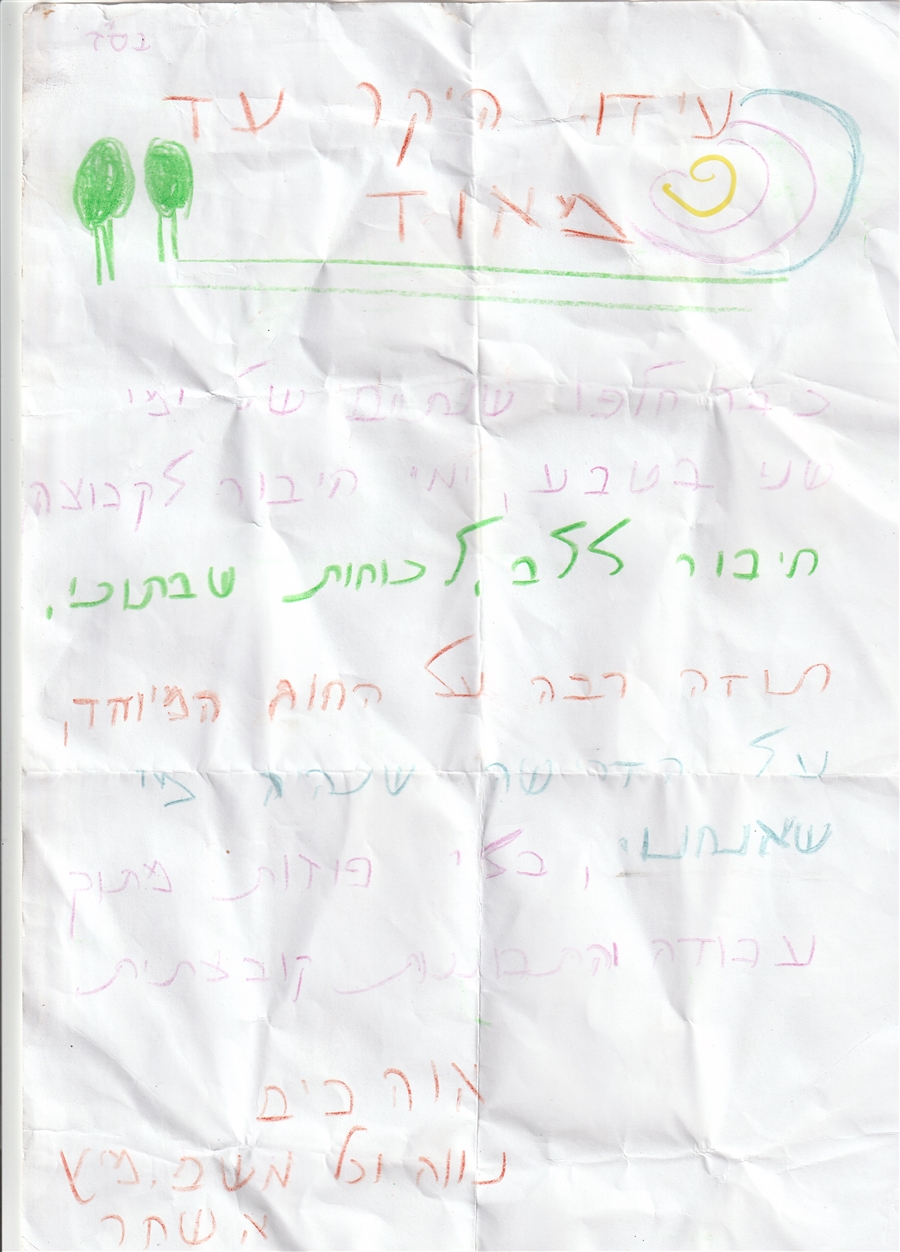 בס״ד
עידו היקר עד
מאוד
כבר חלפו שנתיים של ימי
שני בטבע, ימי חיבור לקבוצה
חיבור ללב, לכוחות שבתוכי.
תודה רבה על החום המיוחד,
על הדרישה שנהיה מי
שאנחנו, בלי פוזות מתוך
עבודה והתבוננות קבוצתית
אוהבים
נווה וכל משפ'
אשחר